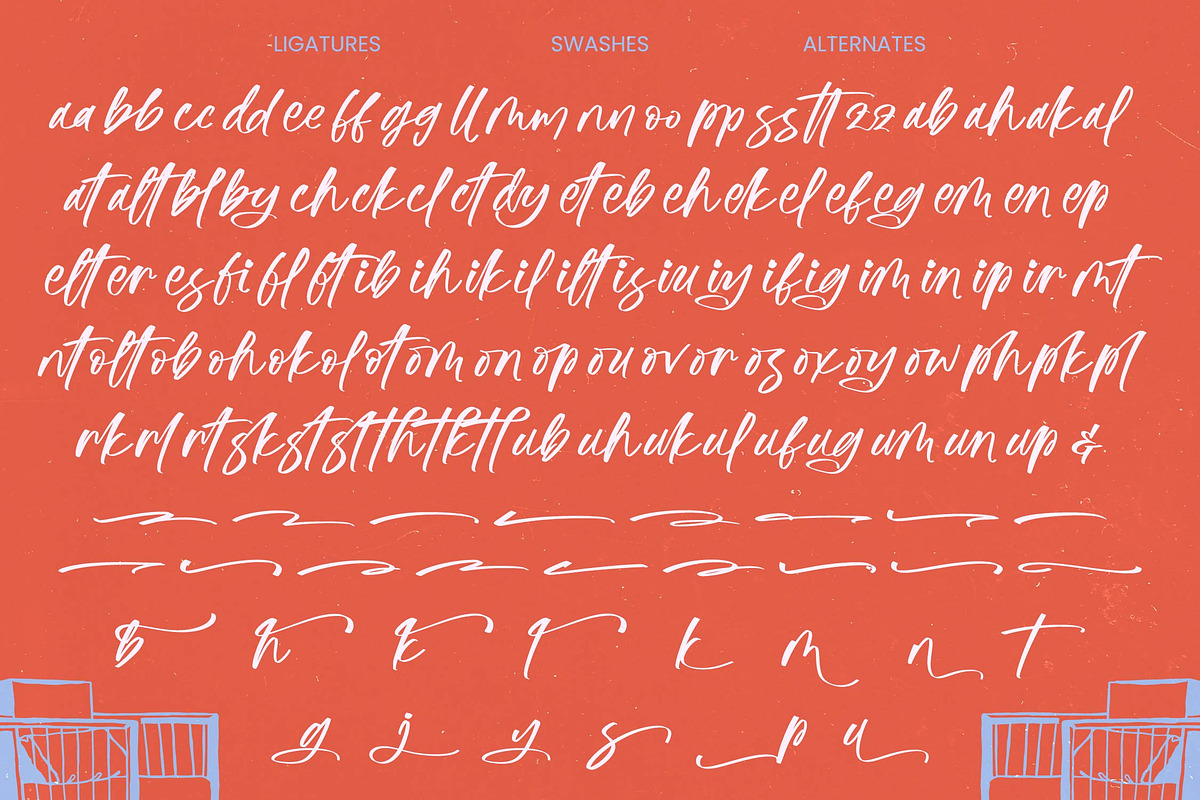 LIGATURES SWASHES ALTERNATES
aa bb cc dd ee ff gg ll mm nn oo pp ss tt zz ab ah ak al
at alt bl by ch ck cl ct dy et eb eh ek el ef eg em en ep
elt er es fi fl ft ib ih ik il ilt is iu iy if ig im in ip ir mt
nt olt ob oh ok ol ot om on op ou ov or oz ox oy ow ph pk pl
rk rl rt sk st sl th tk tl ub uh uk ul uf ug um un up &
b h k l k m n t
g j y s p u